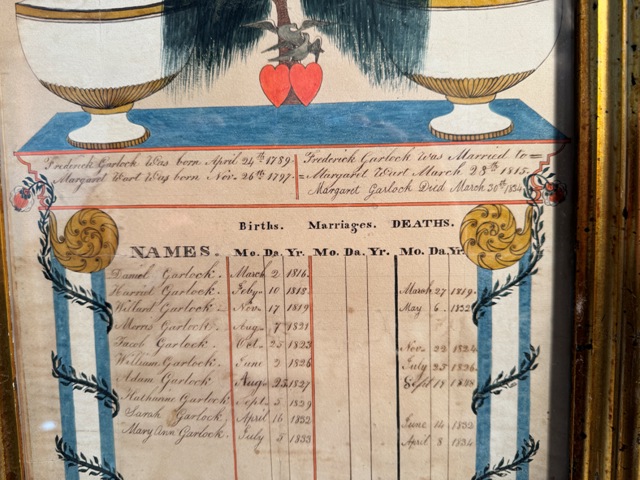 Frederick Garlock Was born April 24th 1789. Frederick Garlock Was Married to =
Margaret Wart Was born Nov. 26th 1797. = Margaret Wart March 28th 1815.
Margaret Garlock Died March 30th 1834
Births. Marriages. DEATHS.
NAMES. Mo. Da. Yr. Mo. Da. Yr. Mo. Da. Yr.
Daniel Garlock. March 2 1816.
Harriet Garlock. Feby. 10 1818 March 27 1819.
Willard Garlock. Nov. 17 1819 May 6 1822
Morris Garlock. Aug. 7 1821
Jacob Garlock. Oct. 25 1823 Nov. 22 1824
William Garlock. June 9 1826 July 25 1826.
Adam Garlock Aug. 25 1827 Sept 18 1828
Garlock. Sept. 5 1829
Sarah Garlock. April 16 1832 June 14 1832
Mary Ann Garlock. July 5 1833 April 8 1834